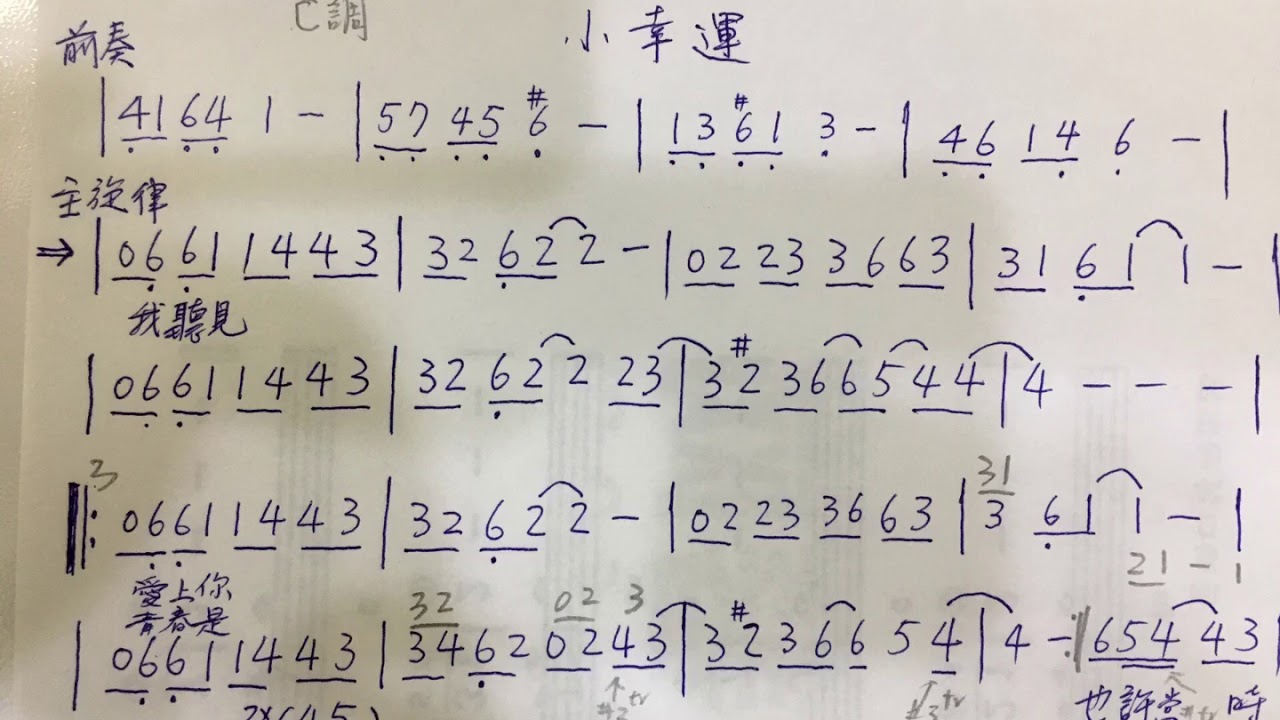 C調
小幸運
前奏
| 41 64 1 - | 57 45 #6 - | 13 #61 3 - | 46 14 6 - |
主旋律
⇒ | 06 61 14 43 | 32 62 2 - | 02 23 36 63 | 31 61 1 - |
我聽見
| 06 61 14 43 | 32 62 2 23 | 3#2 36 65 44 | 4 - - - |
3 31
‖: 06 61 14 43 | 32 62 2 - | 02 23 36 63 | 3 61 1 - |
21 - |
愛上你
青春是
32 02 3
| 06 61 14 43 | 34 62 02 43 | 3#2 36 6 5 4 | 4 - :‖ 654 43 |
也許當 時